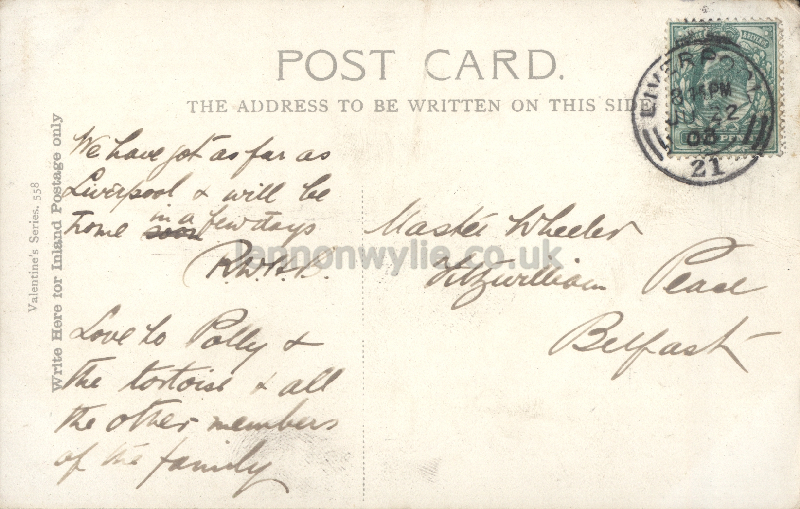 POST CARD.
THE ADDRESS TO BE WRITTEN ON THIS SIDE
LIVERPOOL
8 15 PM
22
08
21
Valentine's Series. 558
Write Here for Inland Postage only
We have got as far as
Liverpool & will be
home soon in a few days
Love to Polly &
the tortoise & all
the other members
of the family
Master Wheeler
Fitzwilliam Place
Belfast
lennonwylie.co.uk